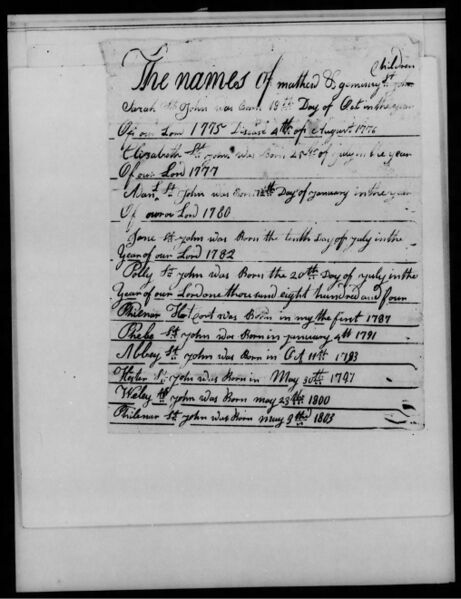 Children
The names of mathew & gemimy St john
Sarah St John was born 18th Day of Oct in the year
Of our Lord 1775 Diseast 4th of August 1776
Elizabeth St john was Born 25th of july in the year
Of our Lord 1777
St John was Born 12th Day of january in the year
Of our Lord 1780
Jane St john was Born the tenth Day of july in the
Year of our Lord 1782
Polly St john was Born the 20th Day of july in the
Year of our Lord one thousand eight hundred and four
Philenar was Born in may the first 1787
Phebe St john was Born in january 4th 1791
Abbey St john was Born in Oct 11th 1793
Hester St john was Born in May 30th 1797
Weley St john was Born may 23th 1800
Philenar St john was Born may 9th 1803